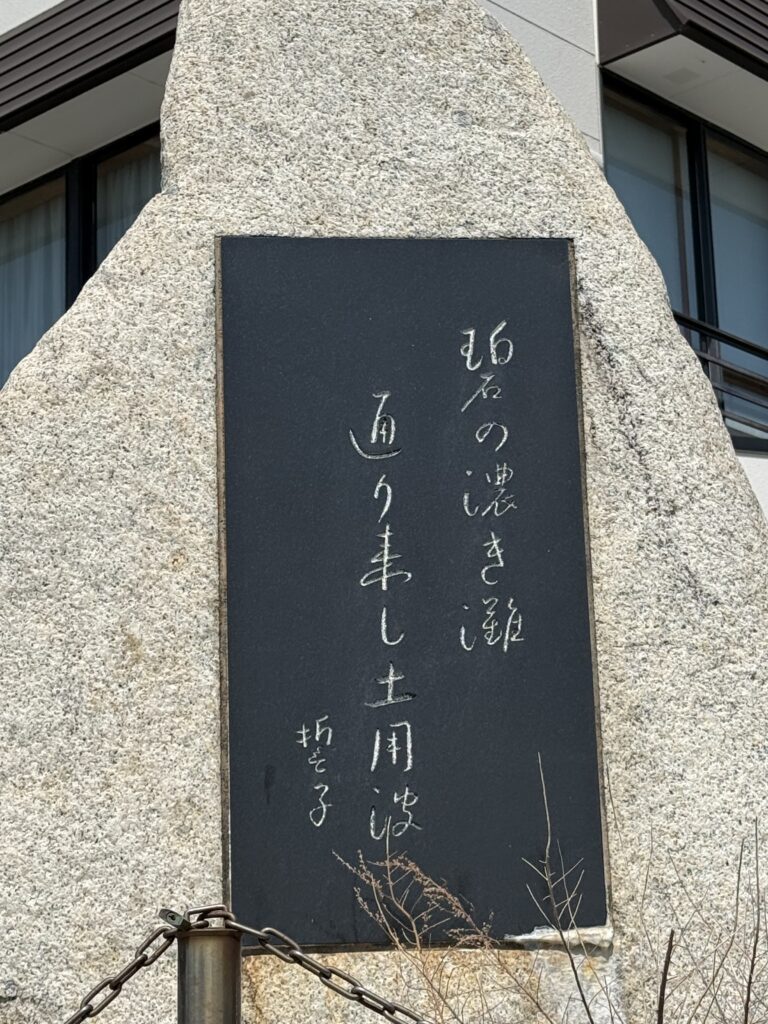 碧の濃き灘
通り来し土用波
哲子